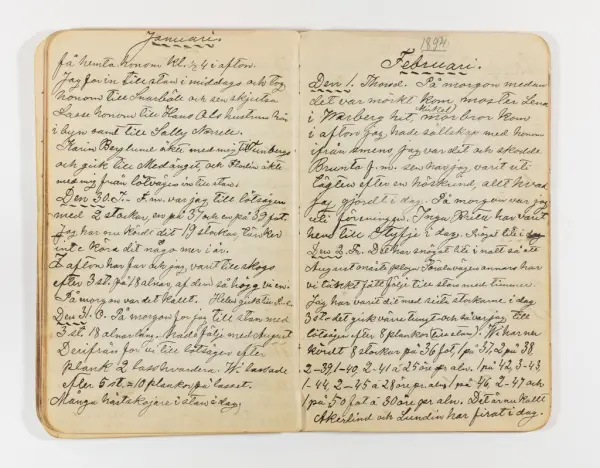 Januari.
få hemta honom kl. ½ 4 i afton.
Jag for in till stan i middags och tog
honom till Snarbäck och sen skjutsa
Lasse honom till Hans Ols hustrun hin
i byn samt till Sally Norrek.
Karin Berglund åkte med mig till
och gick till Medänget, och Florin åkte
med mig från lötvägen in till stan.
Den 30. T. F.m. var jag till lötsågen
med 2 stockar, en på 37 och en på 39 fot.
Jag har nu kördt dit 19 stockar, tänker
inte köra dit någo mer i år.
I afton har far och jag varit till skogs
efter 3 st. på 18 alnar, af dem så högg vi en.
På morgon var det kallt. Helen gick till
Den 31. O. På morgon for jag till stan med
3 st. 18 alnar lång. Hade följe med August
Derifrån for vi till lötsågen efter
plank 2 lass hvardera. Vi lassade
efter 5 st. = 10 plankor på lasset.
Många hästskojare i stan i dag.
1894
Februari.
Den 1. Thorsd. På morgon medan
det var mörkt kom moster Lena
i Warberg hit, morbror kom
(Mickel)
i afton. Jag hade sällskap med honom
ifrån Amens, Jag var dit och skodde
Brunta f.m. sen har jag varit uti
Lågten efter en höskrind, allt hvad
jag gjordt i dag. På morgon var jag
uti föreningen. Inga Frua har varit
hem till Styfje i dag. Snögat lite i dag
Den 2. Fr. Det har snögat lite i natt så att
August måste ploga Förålsvägen annars har
vi tänkt fått följe till stan med timmer.
Jag har varit dit med sista stockarne i dag
3 st. det gick värre tungt och så var jag till
lötsågen efter 8 plankor (till stan). Wi har nu
kördt 8 stockar på 36 fot, 1 på 37, 2 på 38
2-39, 1-40, 2-41 à 25 öre pr aln. 1 på 42, 3-43,
1-44, 2-45 à 28 öre pr. aln, 1 på 46, 2-47 och
1 på 50 fot à 30 öre pr aln. Det är nu kallt
Åkerlind och Lundin har firat i dag.